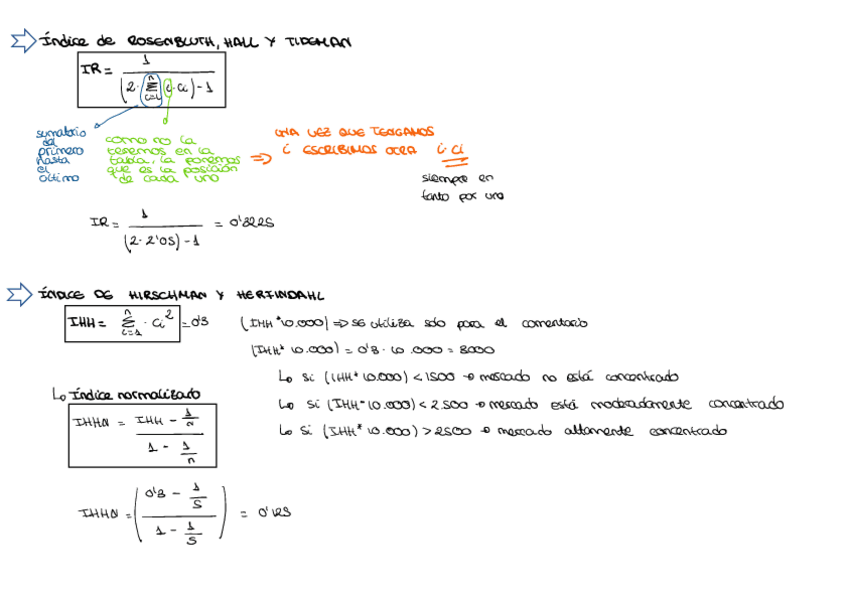 Índice de ROSENBLUTH, HALL Y TIDEMAN
IR = 1 / (2 · Σ(i=1, n) i · ci) - 1
sumatorio del primero hasta el último
como no la tenemos en la tabla, la ponemos que es la posición de cada uno
⇒ UNA VEZ QUE TENGAMOS i ESCRIBIMOS OTRA i · ci
siempre en tanto por uno
IR = 1 / (2 · 2'05) - 1 = 0'3225
ÍNDICE DE HIRSCHMAN Y HERFINDAHL
IHH = Σ(i=1, n) · ci² = 0'3 (IHH * 10.000) ⇒ se utiliza solo para el comentario
(IHH * 10.000) = 0'3 · 10.000 = 3000
↳ Si (IHH * 10.000) < 1500 → mercado no está concentrado
↳ Índice normalizado
↳ Si (IHH * 10.000) < 2.500 → mercado está moderadamente concentrado
IHHN = (IHH - 1/n) / (1 - 1/n)
↳ Si (IHH * 10.000) > 2500 → mercado altamente concentrado
IHHN = ((0'3 - 1/5) / (1 - 1/5)) = 0'125